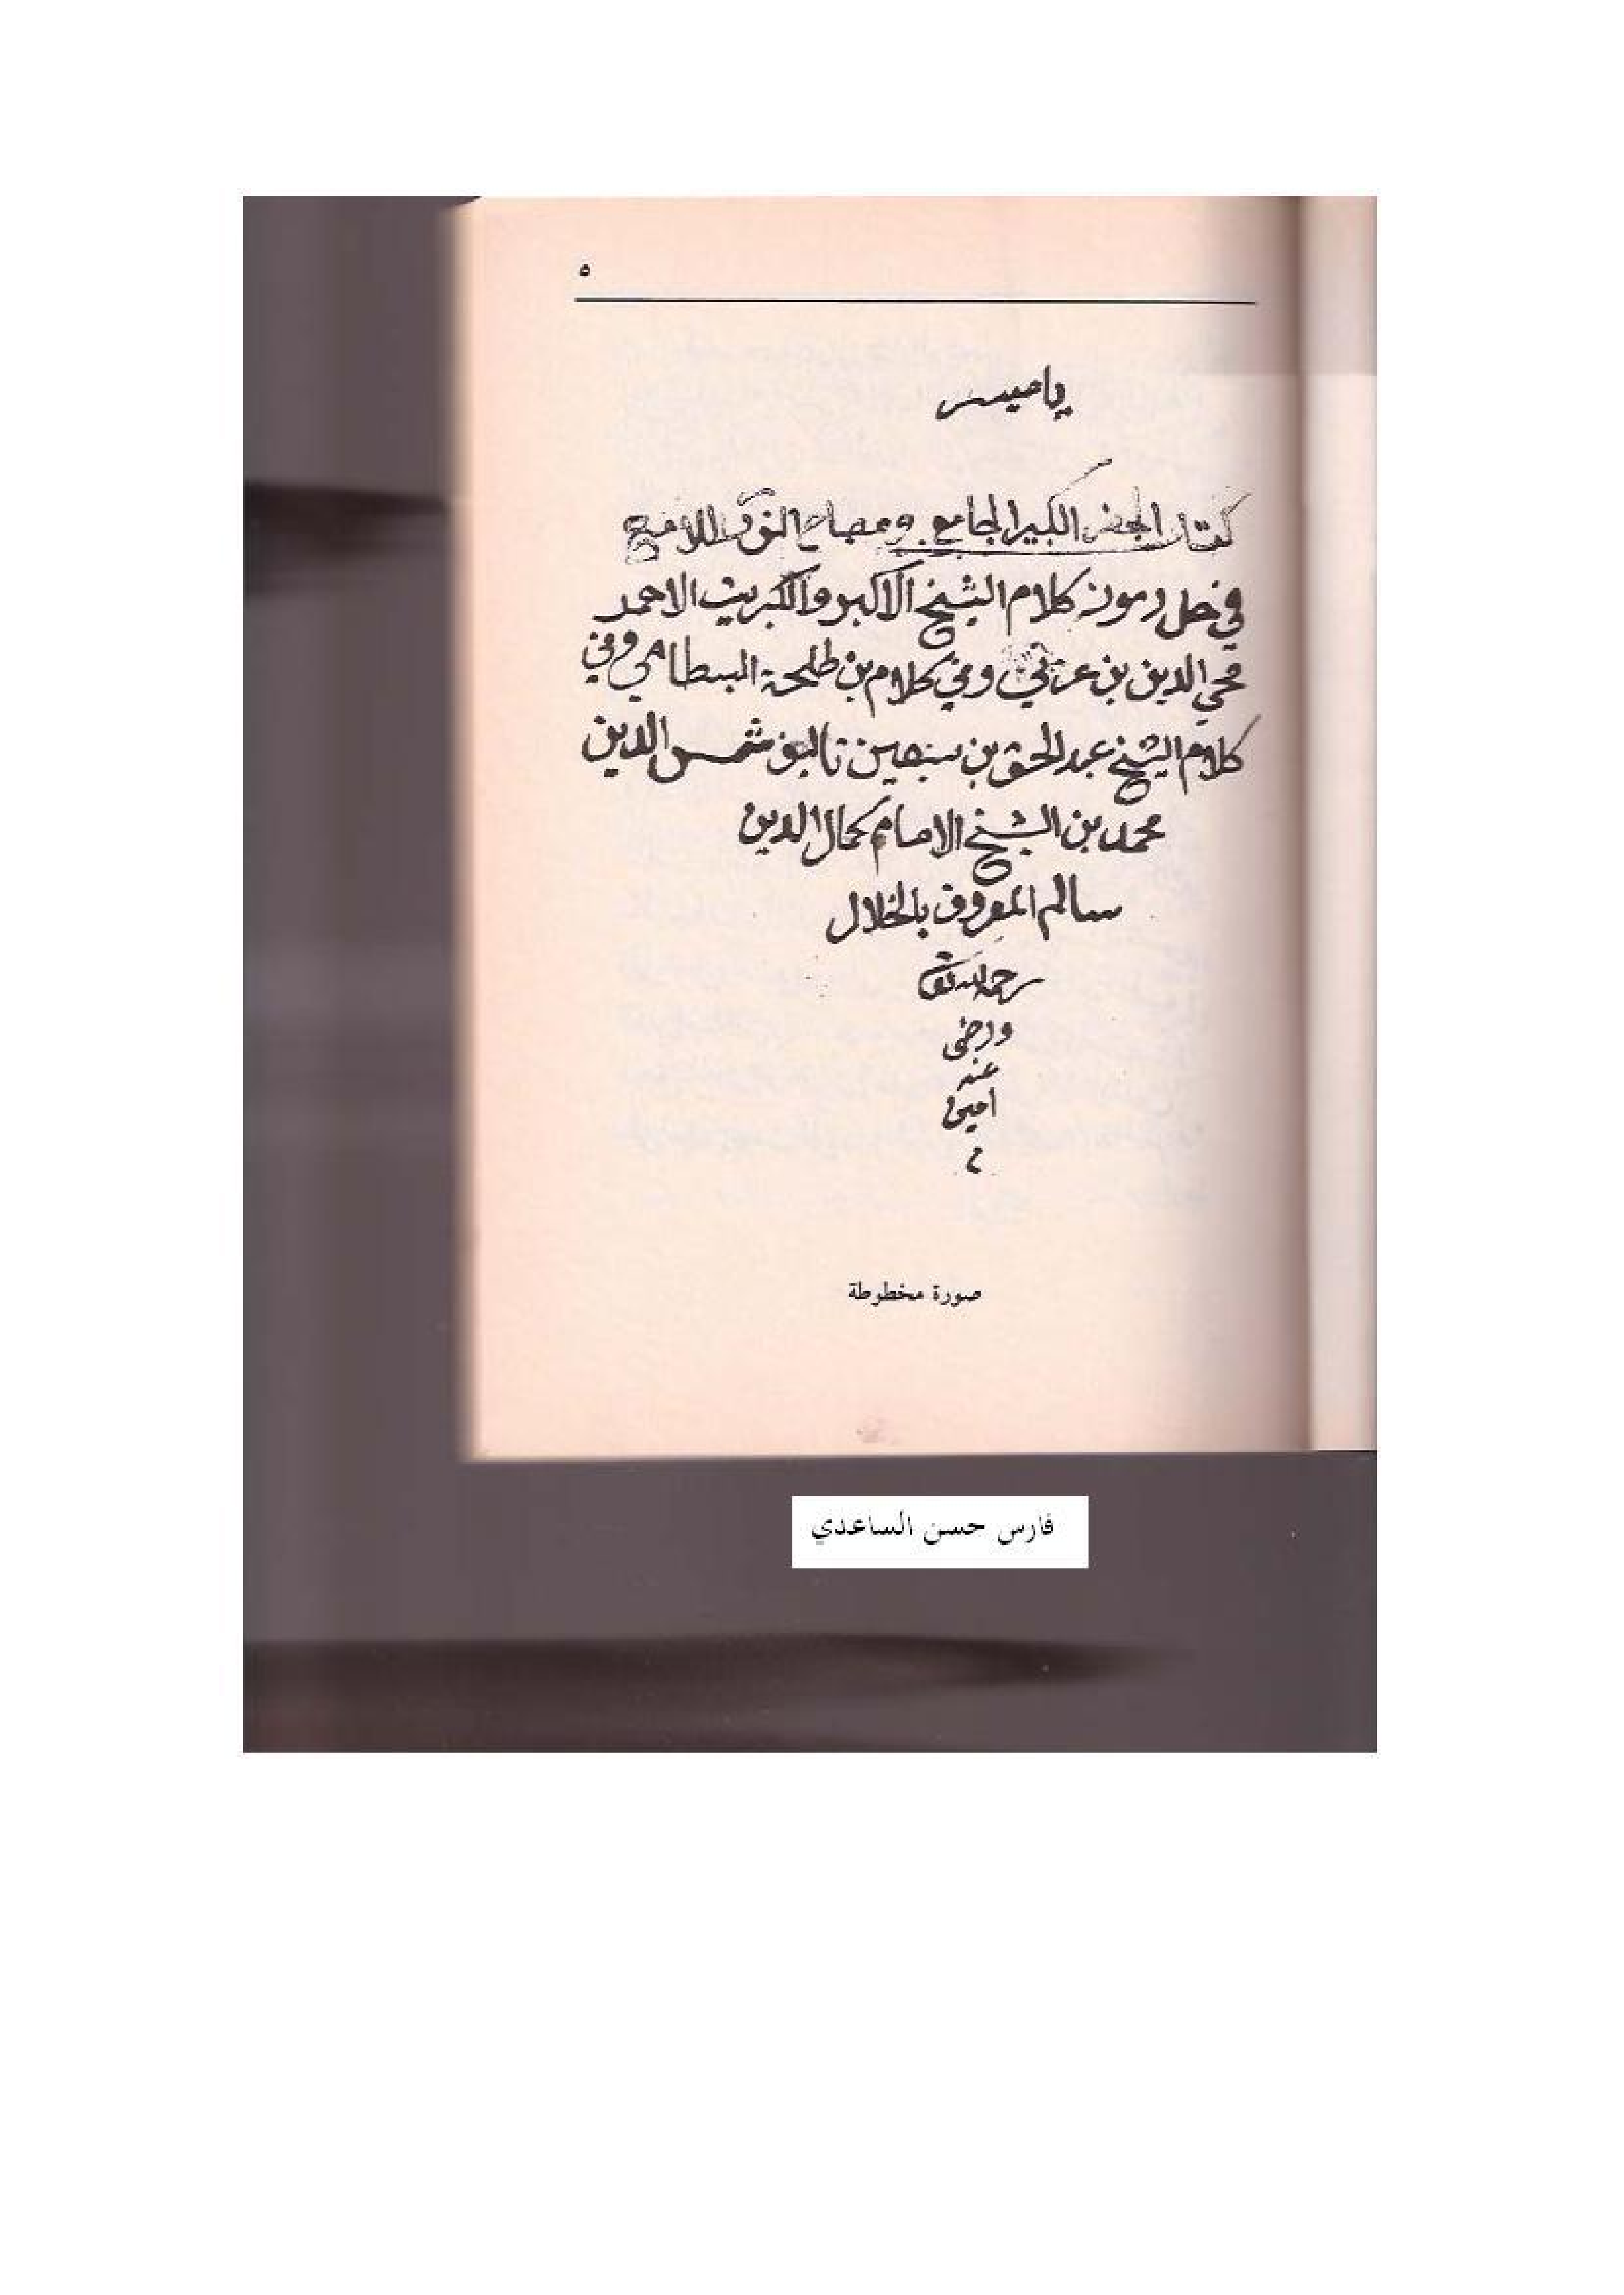 ٥
يا ميسر
كتاب الجفر الكبير الجامع ومصباح النور اللامع
في حل رموز كلام الشيخ الاكبر والكبريت الاحمر
محي الدين بن عربي وفي كلام بن طلحة البسطامي وفي
كلام الشيخ عبد الحق بن سبعين تاليف شمس الدين
محمد بن الشيخ الامام كمال الدين
سالم المعروف بالخلال
رحمه الله تعا
ورضي
عنه
امين
م
صورة مخطوطة
فارس حسن الساعدي